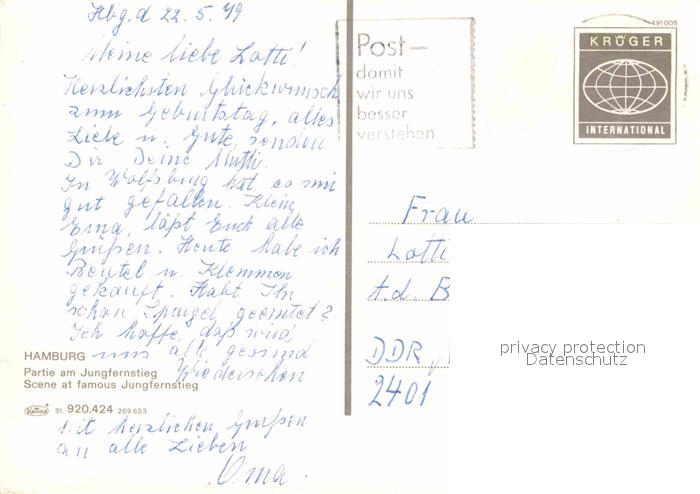 Hbg. d 22.5.79
Meine liebe Lotti!
Herzlichsten Glückwunsch
zum Geburtstag, alles
Liebe u. Gute, senden
Dir Deine Mutti.
In Wolfsburg hat es mir
gut gefallen. Klein
Erna, läßt Euch alle
Grüßen. Heute habe ich
Beutel u. Klemmen
gekauft. Habt Ihr
schon Spargel geerntet?
Ich hoffe, daß wir
uns alle gesund
Wiedersehen
HAMBURG
Partie am Jungfernstieg
Scene at famous Jungfernstieg
Krüger 31. 920.424 269 653
Mit herzlichen Grüßen
an alle Lieben
Oma.
Post-
damit
wir uns
besser
verstehen
491 008
KRÜGER
INTERNATIONAL
Frau
Lotti
a.d. B
DDR
2401
privacy protection
Datenschutz